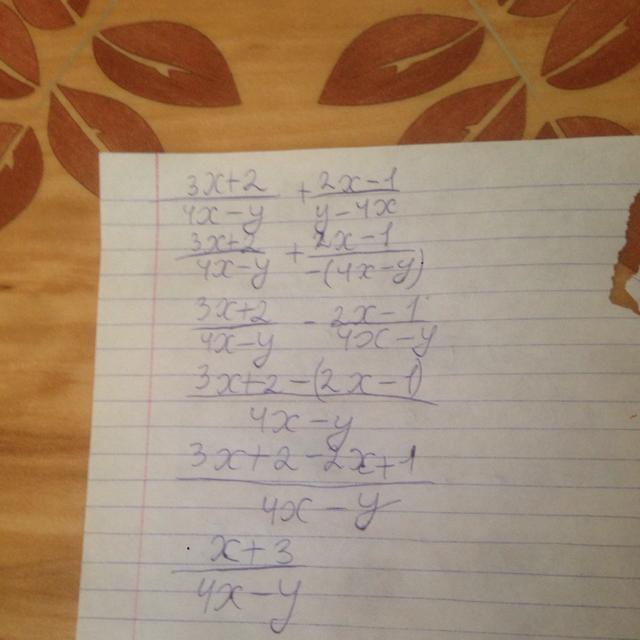 (3x+2)/(4x-y) + (2x-1)/(y-4x)
(3x+2)/(4x-y) + (2x-1)/(-(4x-y))
(3x+2)/(4x-y) - (2x-1)/(4x-y)
(3x+2-(2x-1))/(4x-y)
(3x+2-2x+1)/(4x-y)
(x+3)/(4x-y)